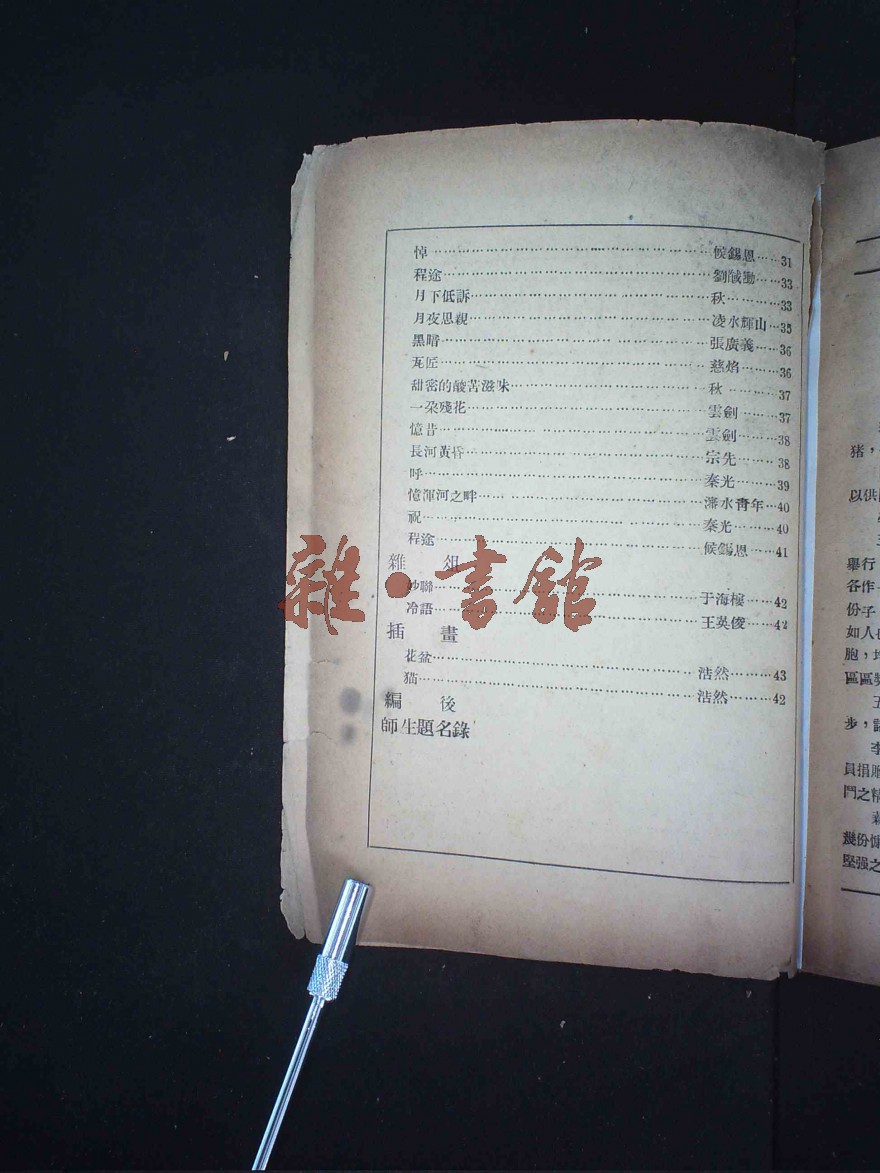 悼……候錫恩……31
程途……劉誠勛……33
月下低訴……秋……33
月夜思親……凌水輝山…35
黑暗……張廣義……36
瓦匠……慈焰……36
甜密的酸苦滋味……秋……37
一朶殘花……雲劍……37
憶昔……雲劍……38
長河黃昏……宗先……38
呼……秦光……39
憶渾河之畔……瀋水靑年…40
祝……秦光……40
程途……候錫恩……41
雜 俎
妙聯……于海樓……42
冷語……王英俊……42
插 畫
花盆……浩然……43
猫……浩然……42
編 後
師生題名錄
雜·書舘
猪，
以供
舉行
各作
份子
如人
胞，
區區
五
步，
李
員捐
鬥之精
幾份
堅强之